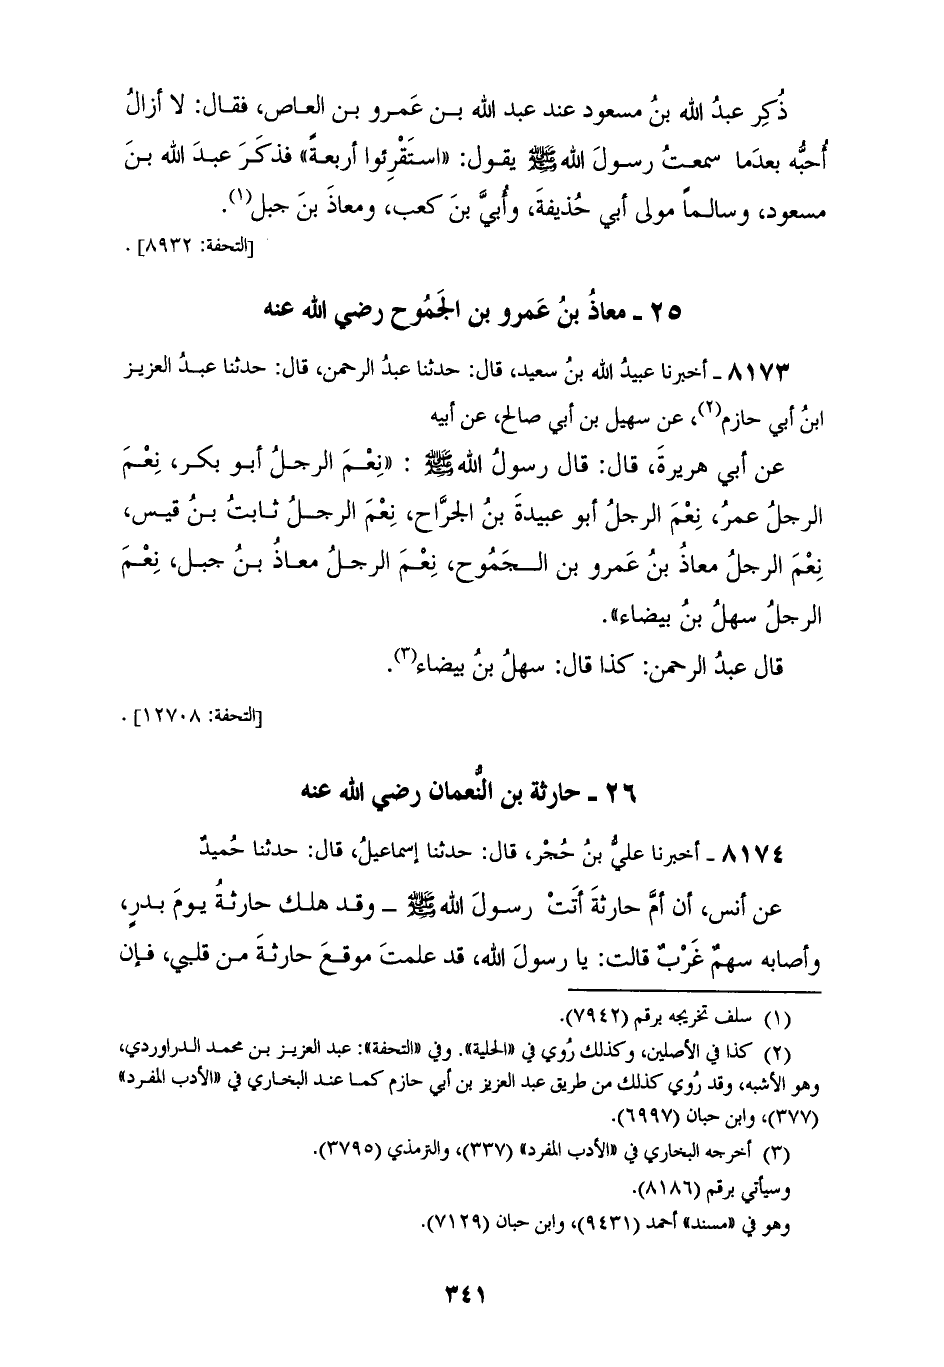 ذُكِر عبدُ الله بنُ مسعود عند عبد الله بـن عَمـرو بن العـاص، فقـال: لا أزالُ
أُحبُّه بعدَما سمعـتُ رسـولَ الله ﷺ يقـول: «استَقْرِئوا أربعـةً» فذكـَرَ عبـدَ الله بـنَ
مسعود، وسالـماً مولى أبي حُذيفةَ، وأُبيَّ بنَ كعب، ومعاذَ بنَ جبل(١).
[التحفة: ٨٩٣٢] .
٢٥ ـ معاذُ بنُ عَمرو بن الجَمُوح رضي الله عنه
٨١٧٣ ـ أخبرنا عبيدُ الله بنُ سعيد، قال: حدثنا عبدُ الرحمن، قال: حدثنا عبـدُ العزيـز
ابنُ أبي حازم(٢)، عن سهيل بن أبي صالح، عن أبيه
عن أبي هريرةَ، قال: قال رسولُ الله ﷺ : «نِعْـمَ الرجـلُ أبـو بكـر، نِعْمَ
الرجلُ عمرُ، نِعْمَ الرجلُ أبو عبيدةَ بنُ الجرَّاح، نِعْمَ الرجـلُ ثـابتُ بـنُ قيـس،
نِعْمَ الرجلُ معاذُ بنُ عَمرو بن الـجَمُوح، نِعْـمَ الرجـلُ معـاذُ بـنُ جبـل، نِعْـمَ
الرجلُ سهلُ بنُ بيضاء».
قال عبدُ الرحمن: كذا قال: سهلُ بنُ بيضاء(٣).
[التحفة: ١٢٧٠٨] .
٢٦ ـ حارثة بن النُّعمان رضي الله عنه
٨١٧٤ ـ أخبرنا عليُّ بنُ حُجْر، قال: حدثنا إسماعيلُ، قال: حدثنا حُميدٌ
عن أنس، أن أمَّ حارثةَ أتَتْ رسـولَ الله ﷺ ـ وقـد هلـك حارثـةُ يـومَ بـدرٍ،
وأصابه سهمٌ غَرْبٌ قالت: يا رسولَ الله، قد علمتَ موقـعَ حارثـةَ مـن قلبي، فـإن
(١) سلف تخريجه برقم (٧٩٤٢).
(٢) كذا في الأصلين، وكذلك رُوي في «الحلية». وفي «التحفة»: عبد العزيـز بـن محمـد الـدراوردي،
وهو الأشبه، وقد رُوي كذلك من طريق عبد العزيز بن أبي حازم كمـا عنـد البخـاري في «الأدب المفـرد»
(٣٧٧)، وابن حبان (٦٩٩٧).
(٣) أخرجه البخاري في «الأدب المفرد» (٣٣٧)، والترمذي (٣٧٩٥).
وسيأتي برقم (٨١٨٦).
وهو في «مسند» أحمد (٩٤٣١)، وابن حبان (٧١٢٩).
٣٤١